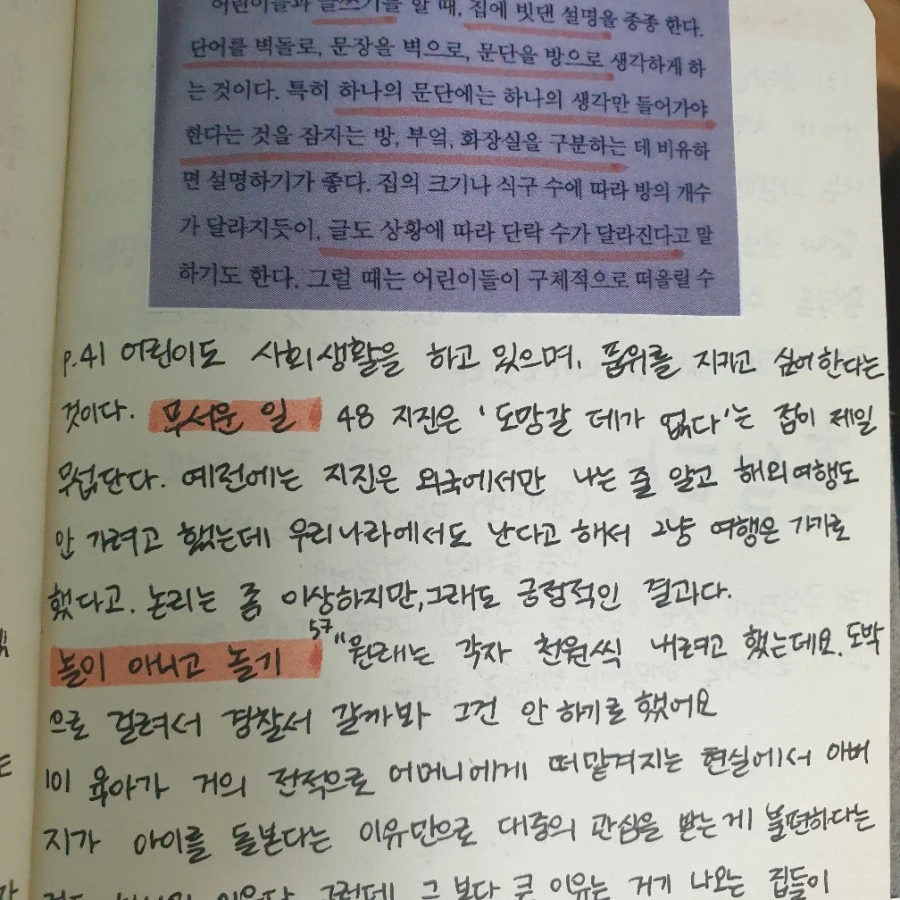 어린이들과 글쓰기를 할 때, 집에 빗댄 설명을 종종 한다.
단어를 벽돌로, 문장을 벽으로, 문단을 방으로 생각하게 하
는 것이다. 특히 하나의 문단에는 하나의 생각만 들어가야
한다는 것을 잠자는 방, 부엌, 화장실을 구분하는 데 비유하
면 설명하기가 좋다. 집의 크기나 식구 수에 따라 방의 개수
가 달라지듯이, 글도 상황에 따라 단락 수가 달라진다고 말
하기도 한다. 그럴 때는 어린이들이 구체적으로 떠올릴 수
p.41 어린이도 사회생활을 하고 있으며, 품위를 지키고 싶어한다는
것이다. 무서운 일 48 지진은 '도망갈 데가 없다'는 점이 제일
무섭단다. 예전에는 지진은 외국에서만 나는 줄 알고 해외여행도
안 가려고 했는데 우리나라에서도 난다고 해서 그냥 여행은 가기로
했다고. 논리는 좀 이상하지만, 그래도 긍정적인 결과다.
놀이 아니고 놀기 57 "원래는 각자 천원씩 내려고 했는데요. 도박
으로 걸려서 경찰서 갈까봐 그건 안 하기로 했어요
101 육아가 거의 전적으로 어머니에게 떠맡겨지는 현실에서 아버
지가 아이를 돌본다는 이유만으로 대중의 관심을 받는 게 불편하다는
이유다. 그런데 그보다 큰 이유는 거기 나오는 집들이